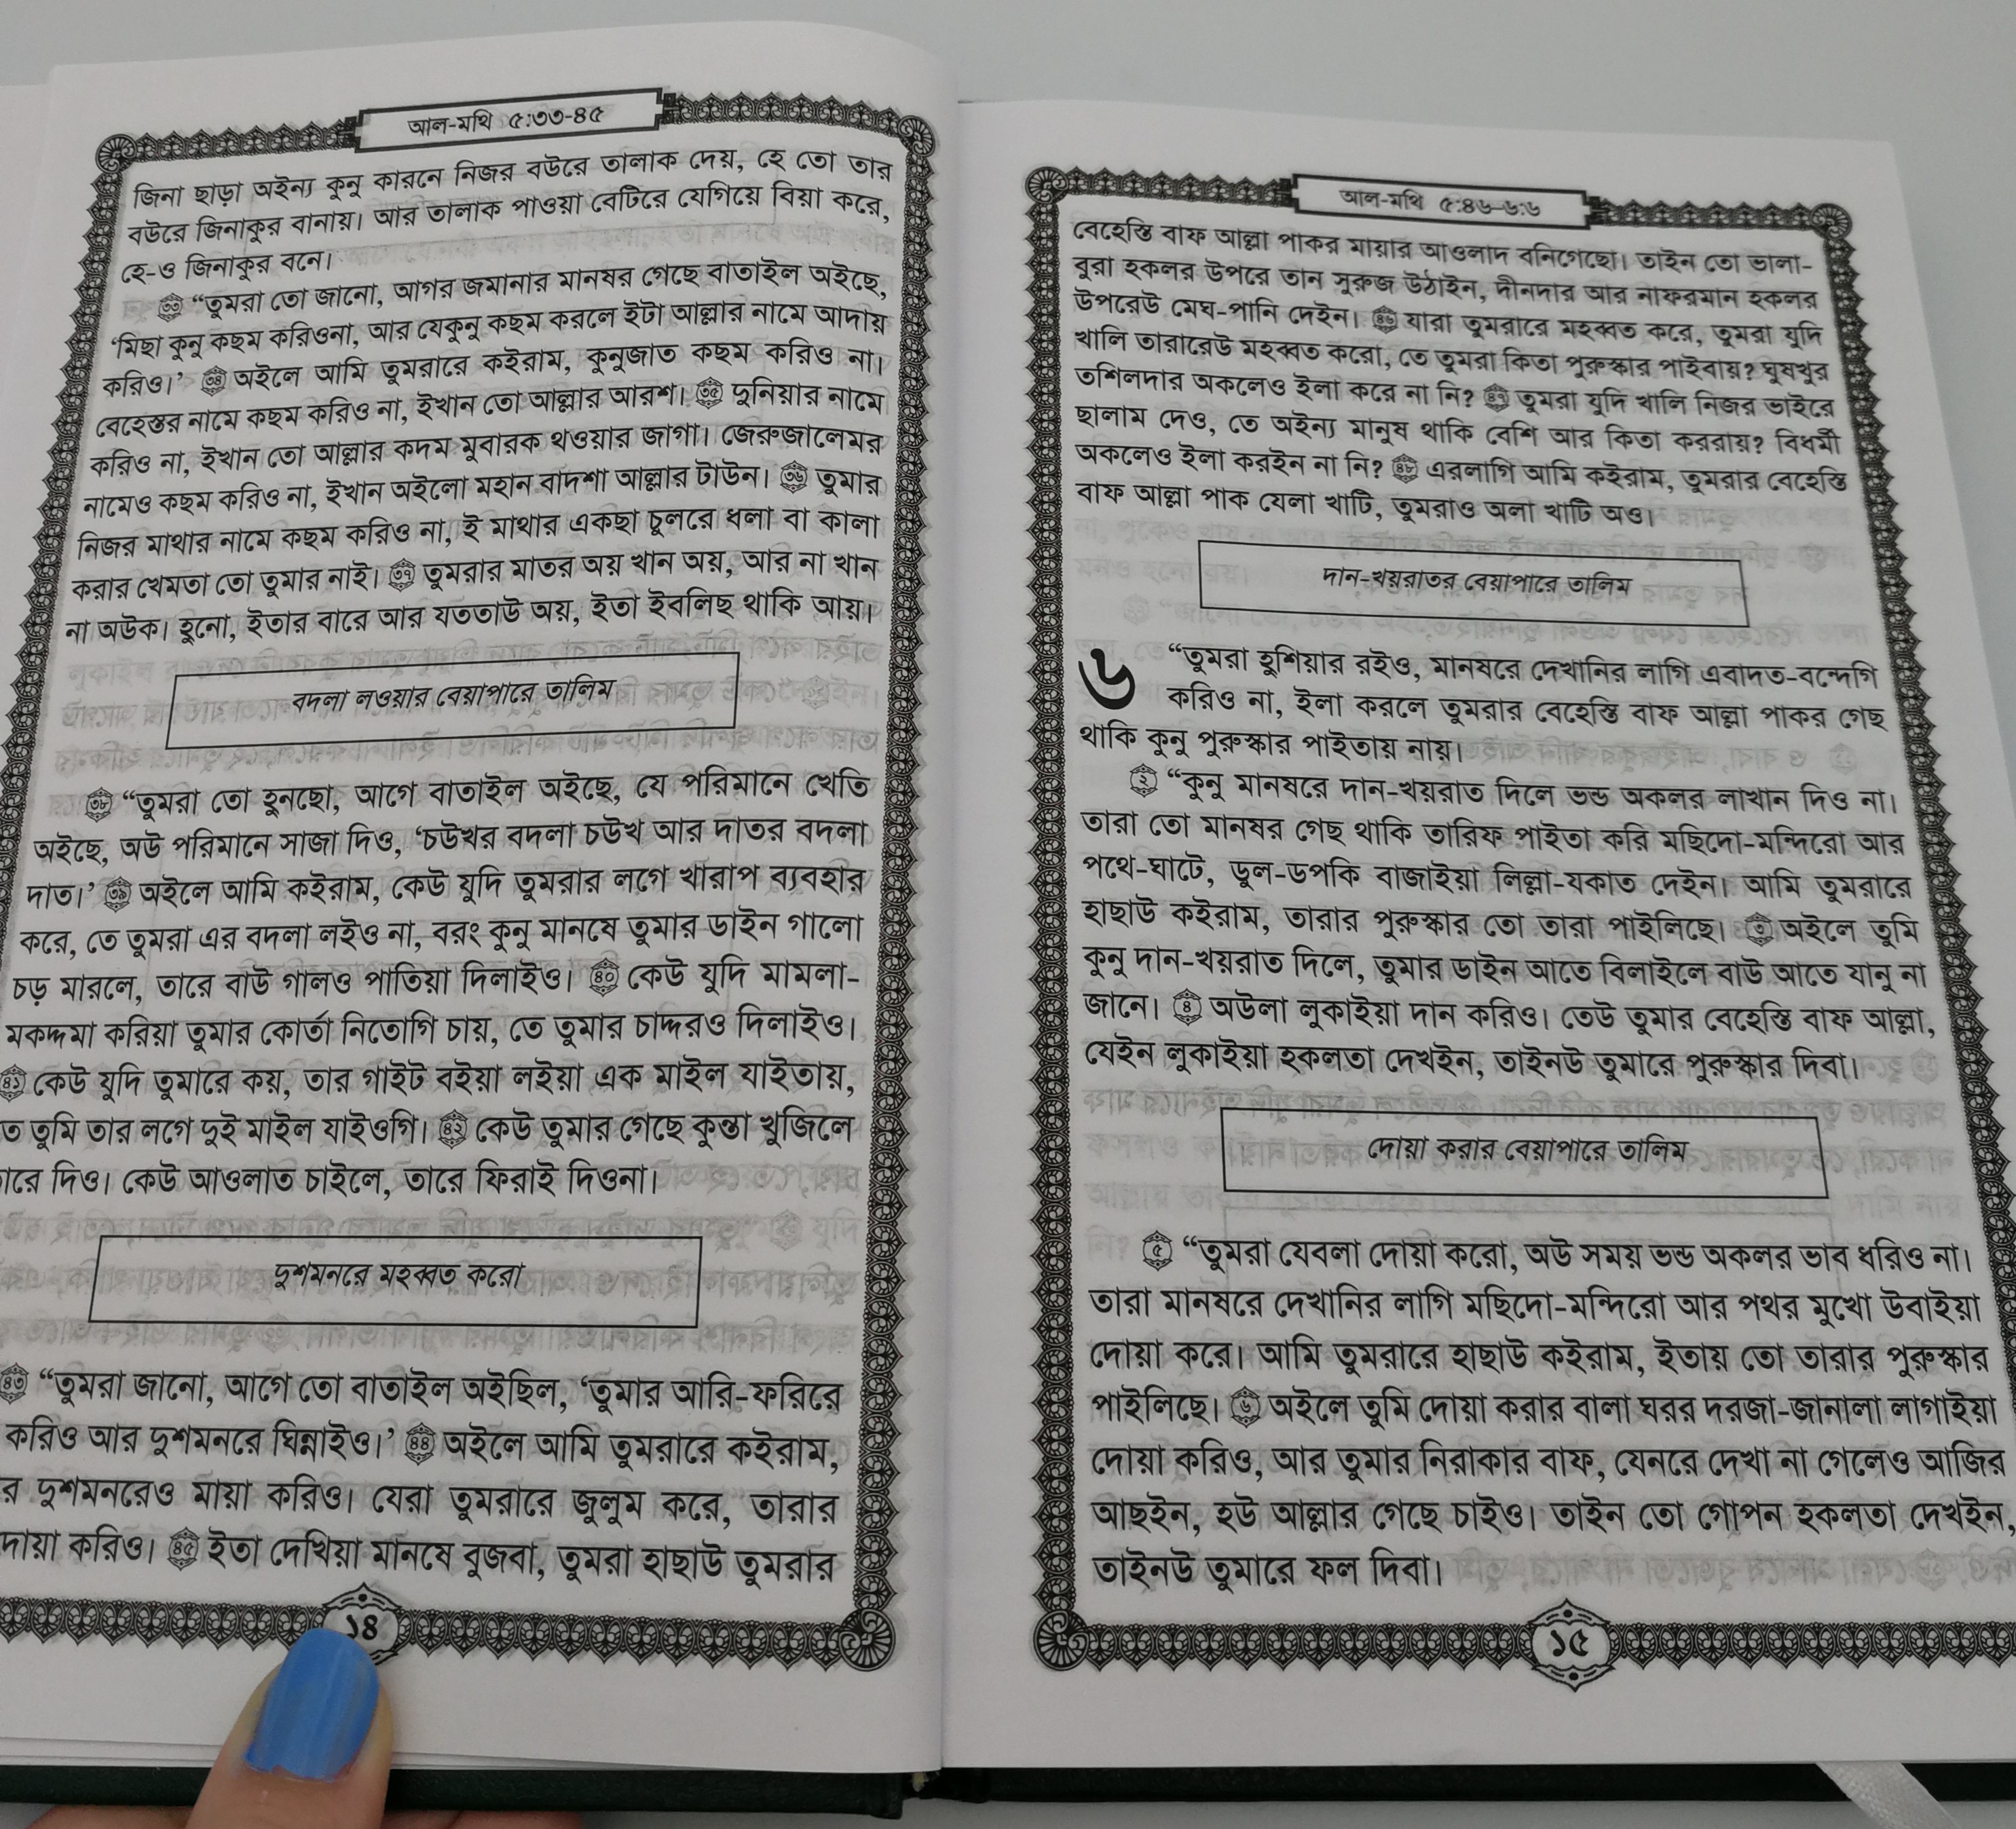 আল-মথি ৫:৩৩-৪৫
জিনা ছাড়া অইন্য কুনু কারনে নিজর বউরে তালাক দেয়, হে তো তার
বউরে জিনাকুর বানায়। আর তালাক পাওয়া বেটিরে যেগিয়ে বিয়া করে,
হে-ও জিনাকুর বনে।
৩৩ “তুমরা তো জানো, আগর জমানার মানষর গেছে বাতাইল অইছে,
‘মিছা কুনু কছম করিওনা, আর যেকুনু কছম করলে ইটা আল্লার নামে আদায়
করিও।’ ৩৪ অইলে আমি তুমরারে কইরাম, কুনুজাত কছম করিও না।
বেহেস্তর নামে কছম করিও না, ইখান তো আল্লার আরশ। ৩৫ দুনিয়ার নামে
করিও না, ইখান তো আল্লার কদম মুবারক থওয়ার জাগা। জেরুজালেমর
নামেও কছম করিও না, ইখান অইলো মহান বাদশা আল্লার টাউন। ৩৬ তুমার
নিজর মাথার নামে কছম করিও না, ই মাথার একছা চুলরে ধলা বা কালা
করার খেমতা তো তুমার নাই। ৩৭ তুমরার মাতর অয় খান অয়, আর না খান
না অউক। হুনো, ইতার বারে আর যততাউ অয়, ইতা ইবলিছ থাকি আয়।
বদলা লওয়ার বেয়াপারে তালিম
৩৮ “তুমরা তো হুনছো, আগে বাতাইল অইছে, যে পরিমানে খেতি
অইছে, অউ পরিমানে সাজা দিও, ‘চউখর বদলা চউখ আর দাতর বদলা
দাত।’ ৩৯ অইলে আমি কইরাম, কেউ যুদি তুমরার লগে খারাপ ব্যবহার
করে, তে তুমরা এর বদলা লইও না, বরং কুনু মানষে তুমার ডাইন গালো
চড় মারলে, তারে বাউ গালও পাতিয়া দিলাইও। ৪০ কেউ যুদি মামলা-
মকদ্দমা করিয়া তুমার কোর্তা নিতোগি চায়, তে তুমার চাদ্দরও দিলাইও।
৪১ কেউ যুদি তুমারে কয়, তার গাইট বইয়া লইয়া এক মাইল যাইতায়,
ত তুমি তার লগে দুই মাইল যাইওগি। ৪২ কেউ তুমার গেছে কুন্তা খুজিলে
ারে দিও। কেউ আওলাত চাইলে, তারে ফিরাই দিওনা।
দুশমনরে মহব্বত করো
৪৩ “তুমরা জানো, আগে তো বাতাইল অইছিল, ‘তুমার আরি-ফরিরে
করিও আর দুশমনরে ঘিন্নাইও।’ ৪৪ অইলে আমি তুমরারে কইরাম,
র দুশমনরেও মায়া করিও। যেরা তুমরারে জুলুম করে, তারার
দোয়া করিও। ৪৫ ইতা দেখিয়া মানষে বুজবা, তুমরা হাছাউ তুমরার
১৪
আল-মথি ৫:৪৬-৬:৬
বেহেস্তি বাফ আল্লা পাকর মায়ার আওলাদ বনিগেছো। তাইন তো ভালা-
বুরা হকলর উপরে তান সুরুজ উঠাইন, দীনদার আর নাফরমান হকলর
উপরেউ মেঘ-পানি দেইন। ৪৬ যারা তুমরারে মহব্বত করে, তুমরা যুদি
খালি তারারেউ মহব্বত করো, তে তুমরা কিতা পুরুস্কার পাইবায়? ঘুষখুর
তশিলদার অকলেও ইলা করে না নি? ৪৭ তুমরা যুদি খালি নিজর ভাইরে
ছালাম দেও, তে অইন্য মানুষ থাকি বেশি আর কিতা কররায়? বিধর্মী
অকলেও ইলা করইন না নি? ৪৮ এরলাগি আমি কইরাম, তুমরার বেহেস্তি
বাফ আল্লা পাক যেলা খাটি, তুমরাও অলা খাটি অও।
দান-খয়রাতর বেয়াপারে তালিম
৬ “তুমরা হুশিয়ার রইও, মানষরে দেখানির লাগি এবাদত-বন্দেগি
করিও না, ইলা করলে তুমরার বেহেস্তি বাফ আল্লা পাকর গেছ
থাকি কুনু পুরুস্কার পাইতায় নায়।
২ “কুনু মানষরে দান-খয়রাত দিলে ভন্ড অকলর লাখান দিও না।
তারা তো মানষর গেছ থাকি তারিফ পাইতা করি মছিদো-মন্দিরো আর
পথে-ঘাটে, ডুল-ডপকি বাজাইয়া লিল্লা-যকাত দেইন। আমি তুমরারে
হাছাউ কইরাম, তারার পুরুস্কার তো তারা পাইলিছে। ৩ অইলে তুমি
কুনু দান-খয়রাত দিলে, তুমার ডাইন আতে বিলাইলে বাউ আতে যানু না
জানে। ৪ অউলা লুকাইয়া দান করিও। তেউ তুমার বেহেস্তি বাফ আল্লা,
যেইন লুকাইয়া হকলতা দেখইন, তাইনউ তুমারে পুরুস্কার দিবা।
দোয়া করার বেয়াপারে তালিম
৫ “তুমরা যেবলা দোয়া করো, অউ সময় ভন্ড অকলর ভাব ধরিও না।
তারা মানষরে দেখানির লাগি মছিদো-মন্দিরো আর পথর মুখো উবাইয়া
দোয়া করে। আমি তুমরারে হাছাউ কইরাম, ইতায় তো তারার পুরুস্কার
পাইলিছে। ৬ অইলে তুমি দোয়া করার বালা ঘরর দরজা-জানালা লাগাইয়া
দোয়া করিও, আর তুমার নিরাকার বাফ, যেনরে দেখা না গেলেও আজির
আছইন, হউ আল্লার গেছে চাইও। তাইন তো গোপন হকলতা দেখইন,
তাইনউ তুমারে ফল দিবা।
১৫